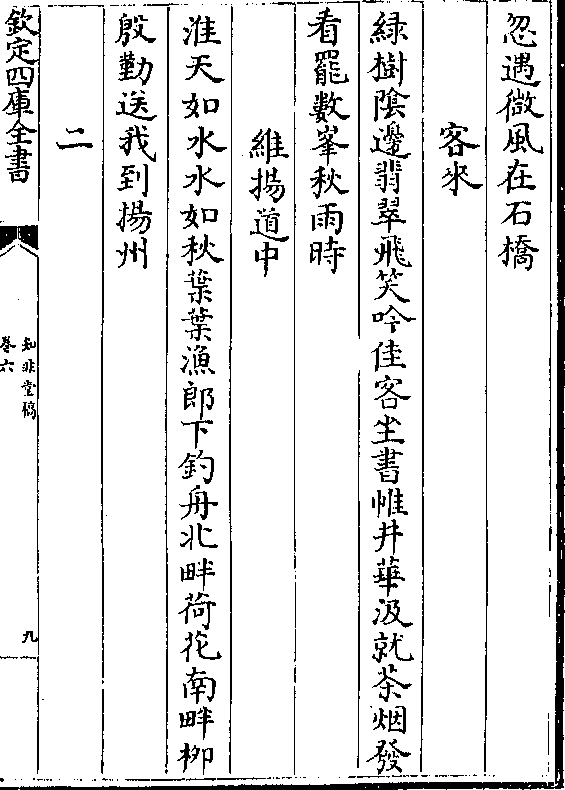 忽遇微風在石橋
客來
緑樹陰邊翡翠飛笑吟佳客坐書帷井華汲就茶烟發
看罷數峯秋雨時
維揚道中
淮天如水水如秋葉葉漁郎下釣舟北畔荷花南畔柳
殷勤送我到揚州
二
欽定四庫全書
知非堂稿
卷六
九